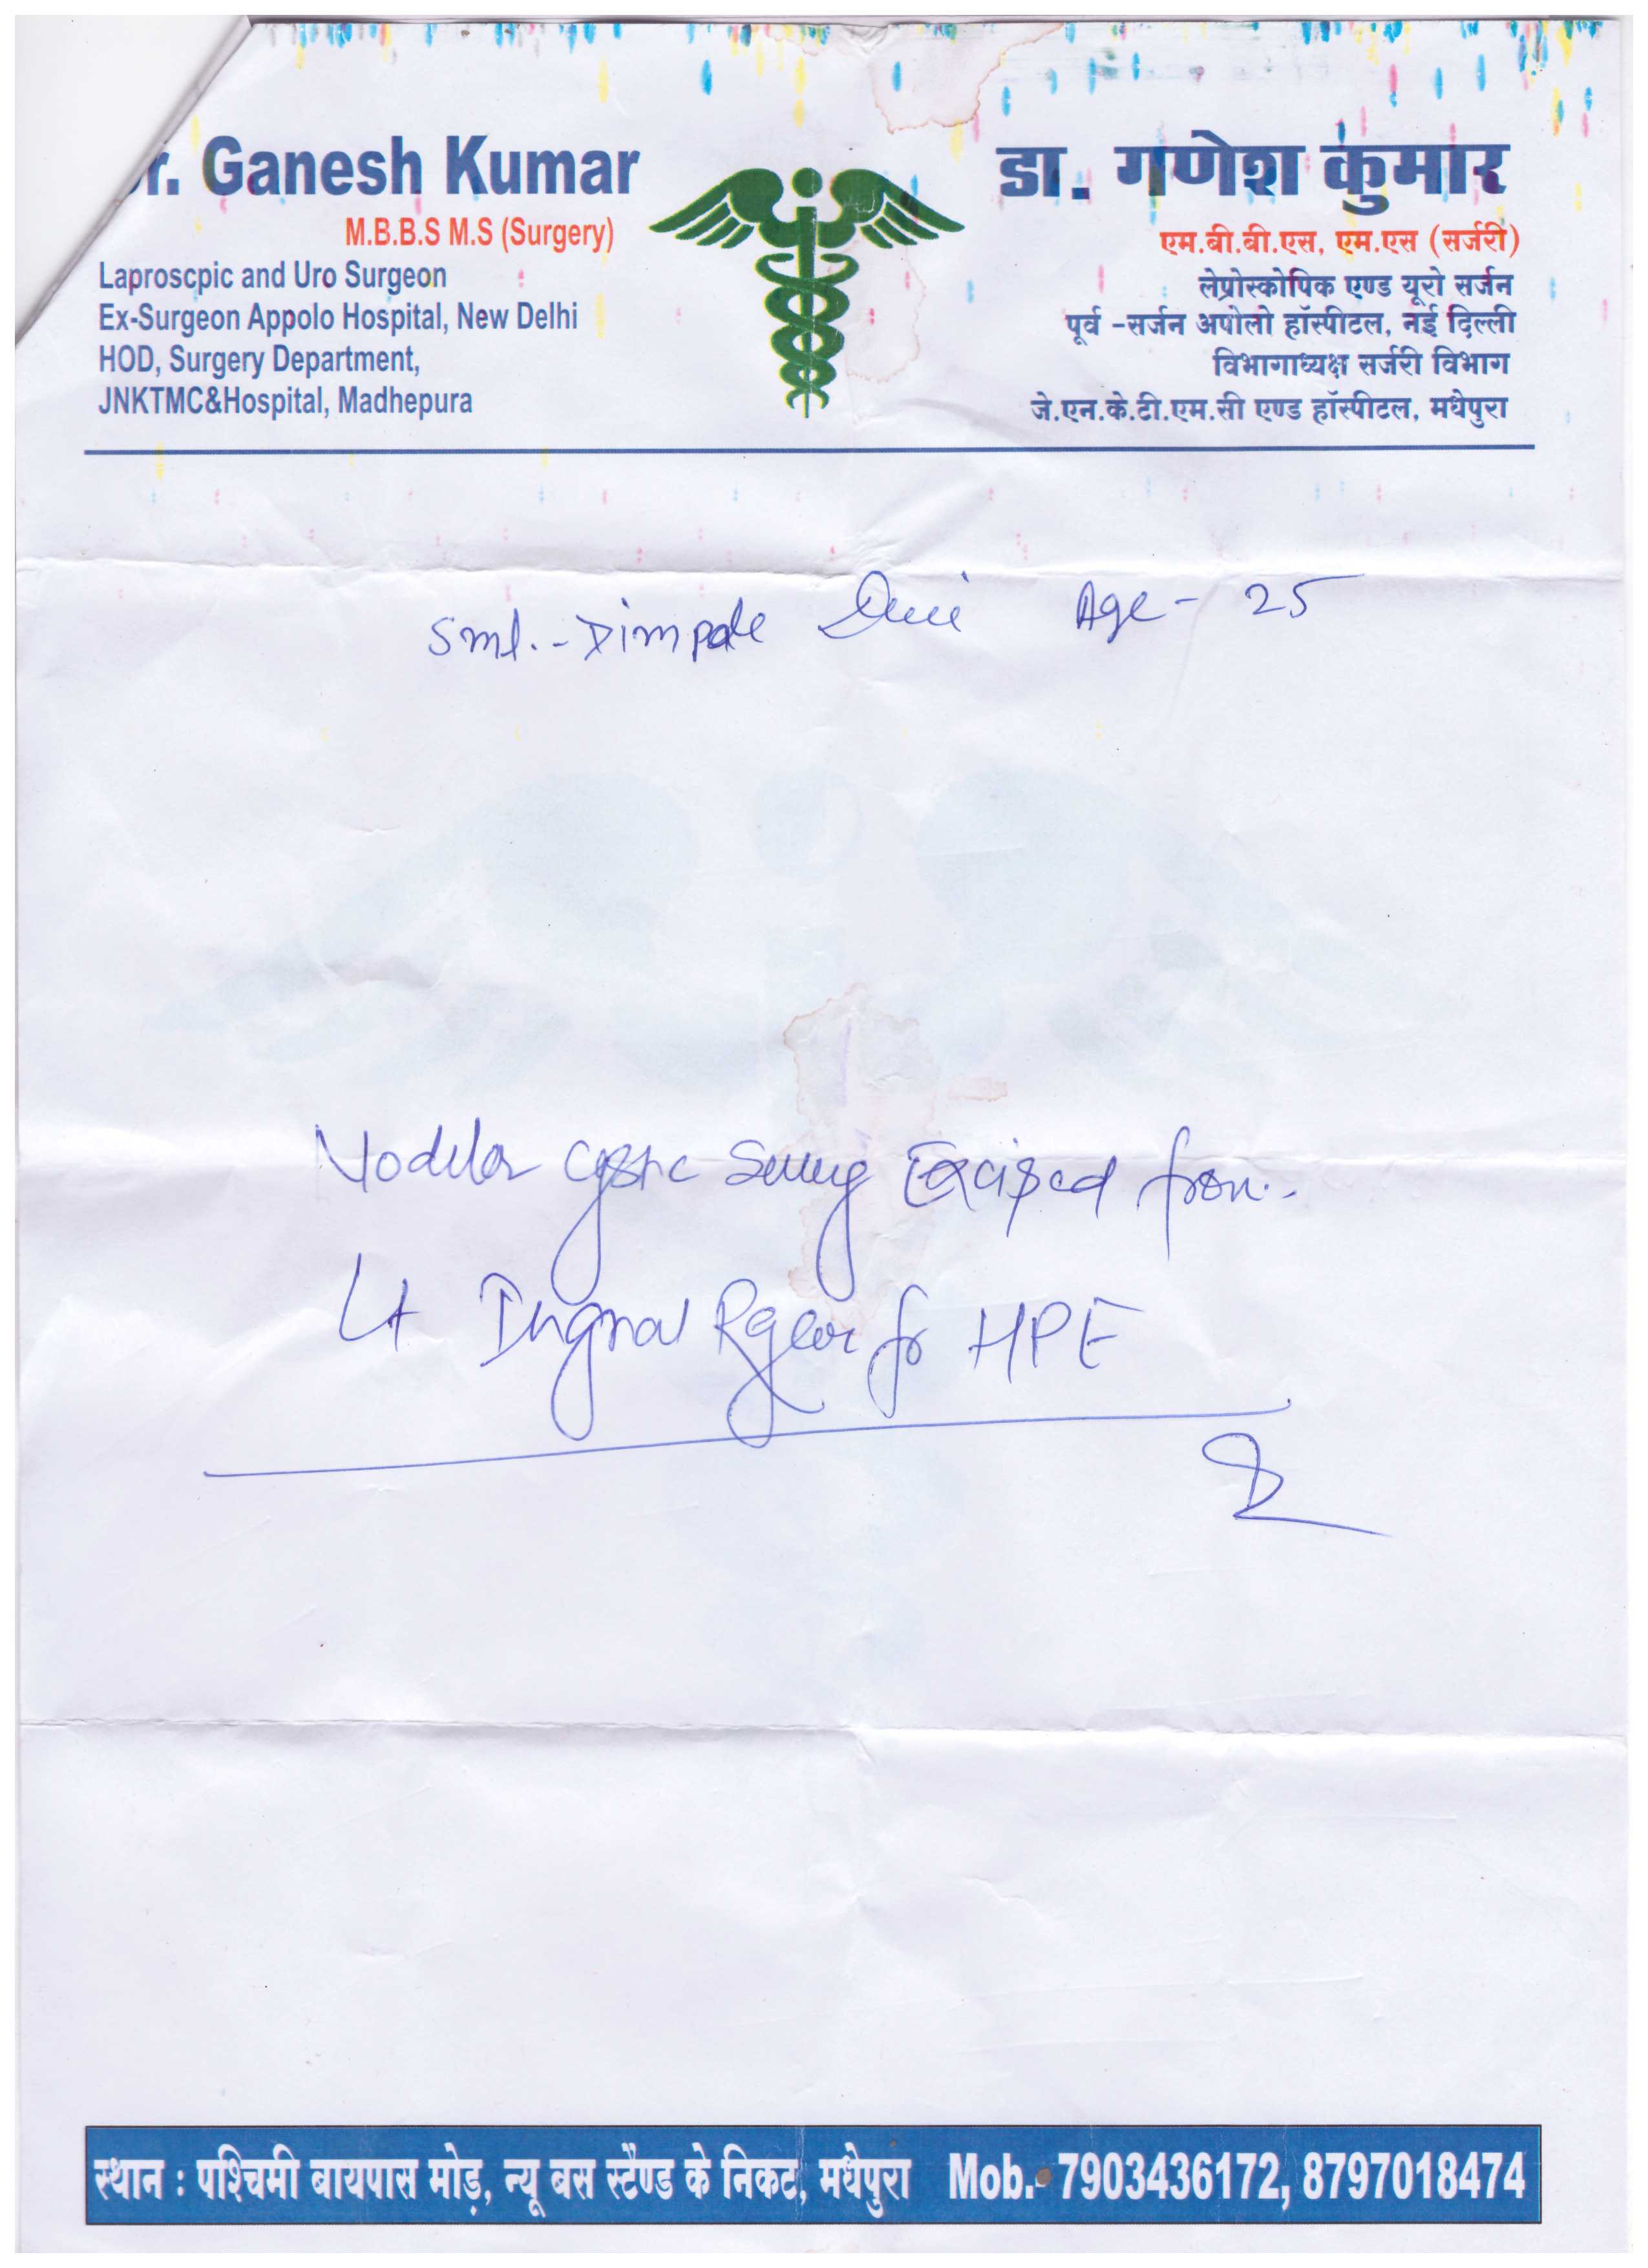 r. Ganesh Kumar
M.B.B.S M.S (Surgery)
Laproscpic and Uro Surgeon
Ex-Surgeon Appolo Hospital, New Delhi
HOD, Surgery Department,
JNKTMC&Hospital, Madhepura
डा. गणेश कुमार
एम.बी.बी.एस, एम.एस (सर्जरी)
लेप्रोस्कोपिक एण्ड यूरो सर्जन
पूर्व -सर्जन अपोलो हॉस्पीटल, नई दिल्ली
विभागाध्यक्ष सर्जरी विभाग
जे.एन.के.टी.एम.सी एण्ड हॉस्पीटल, मधेपुरा
Smt.- Dimpale Devi Age - 25
Nodular Cystic Swelling Excised from
Lt Inguinal Region for HPE
स्थान : पश्चिमी बायपास मोड़, न्यू बस स्टैण्ड के निकट, मधेपुरा Mob.- 7903436172, 8797018474